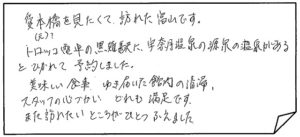 愛本橋を見たくて、訪れた富山です。
(元)?
トロッコ電車の黒部駅に、宇奈月温泉の源泉の温泉がある
とひかれて 予約しました。
美味しい食事 ゆき届いた館内の清潔、
スタッフの心づかい どれも満足です。
また訪れたいところがひとつふえました